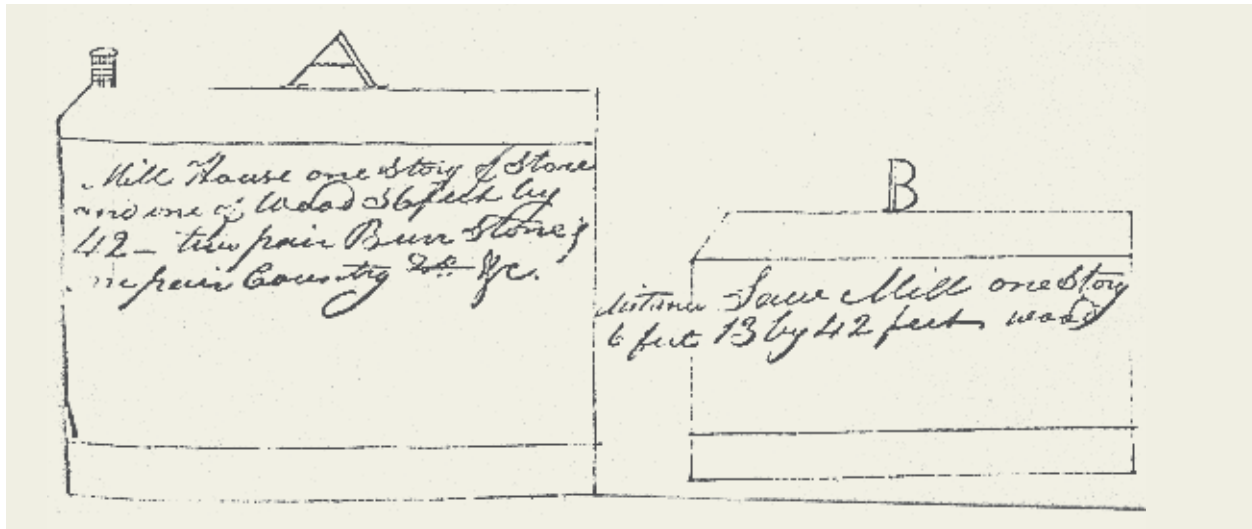 A
Mill House one Story of Stone
and one of Wood 36 feet by
42 — two pair Burr Stones
one pair Country Do. &c.
B
distance
6 feet
Saw Mill one Story
13 by 42 feet wood